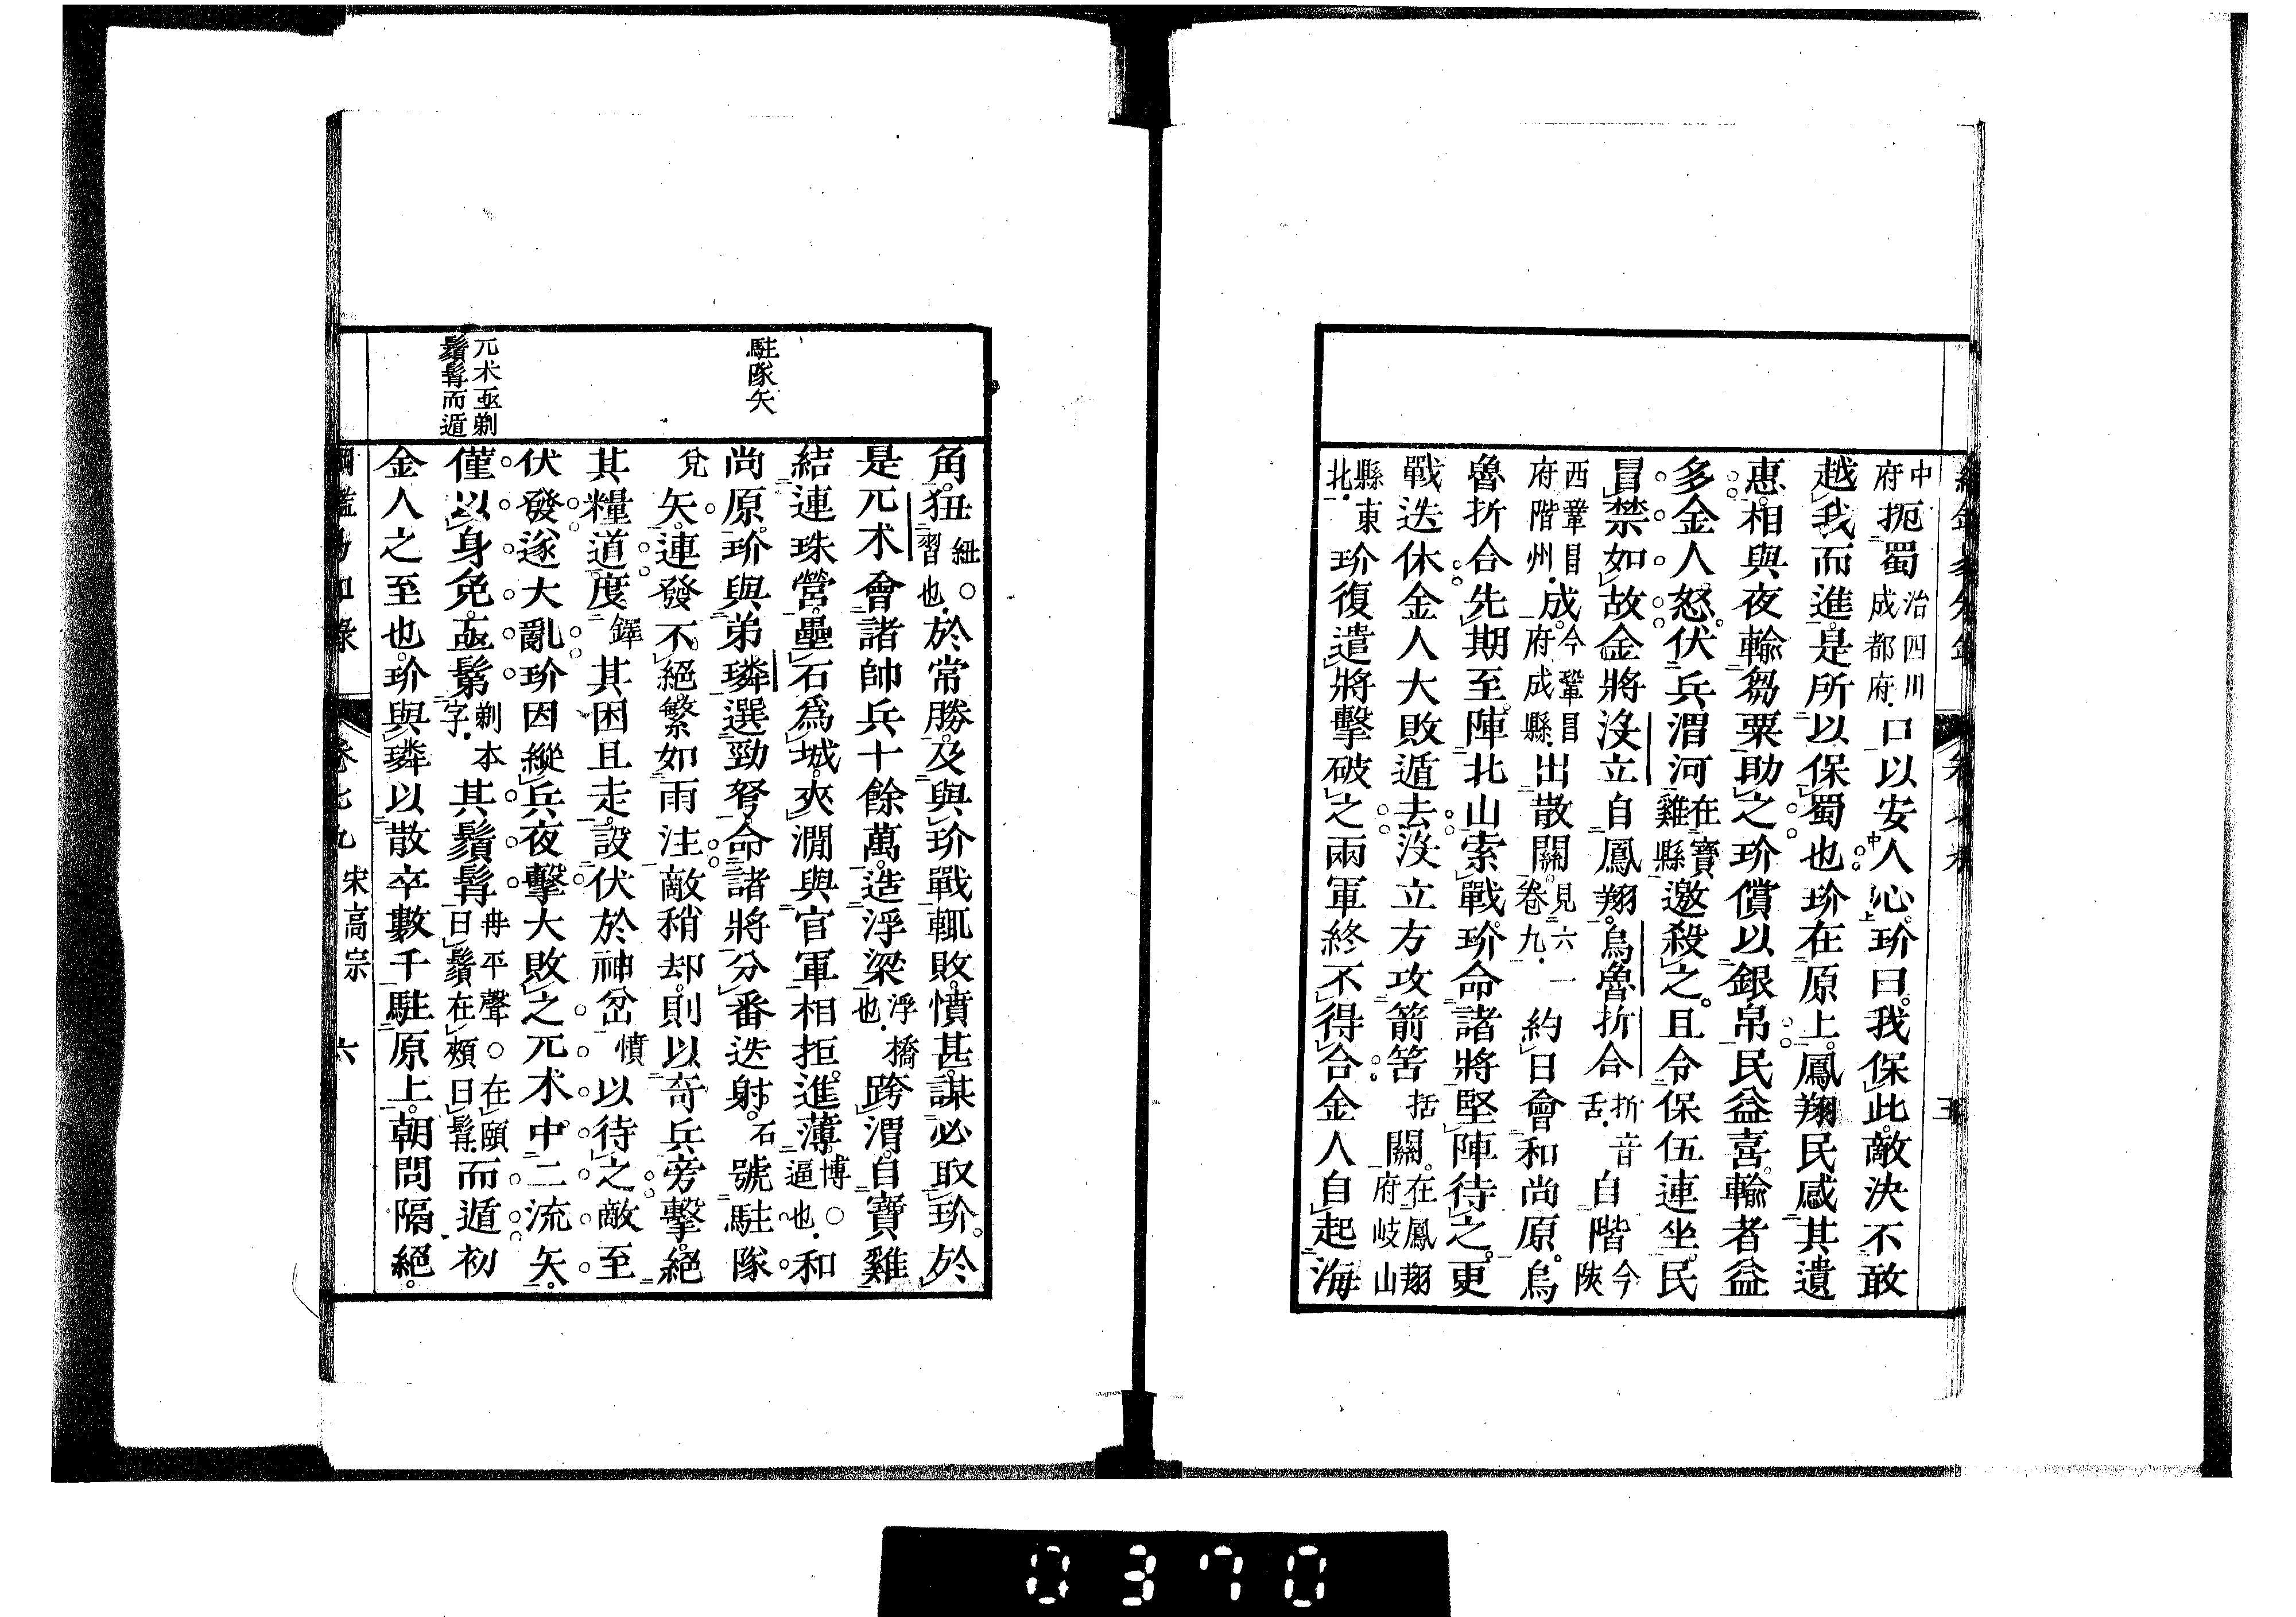 中府扼蜀治四川成都府口以安人心玠曰我保此敵決不敢
越我而進是所以保蜀也玠在原上鳳翔民感其遺
惠相與夜輸芻粟助之玠償以銀帛民益喜輸者益
多金人怒伏兵渭河在寶雞縣邀殺之且令保伍連坐民
冒禁如故金將沒立自鳳翔烏魯折合折音舌自階今陝
西鞏昌府階州成今鞏昌府成縣出散關見六一卷九約日會和尚原烏
魯折合先期至陣北山索戰玠命諸將堅陣待之更
戰迭休金人大敗遁去沒立方攻箭筈括關在鳳翔府岐山
縣東北玠復遣將擊破之兩軍終不得合金人自起海
角狃紐○習也於常勝及與玠戰輒敗憤甚謀必取玠於
是兀术會諸帥兵十餘萬造浮梁浮橋也跨渭自寶雞
結連珠營壘石爲城夾澗與官軍相拒進薄博○逼也和
尚原玠與弟璘選勁弩命諸將分番迭射石號駐隊
矢兌連發不絕繁如雨注敵稍却則以奇兵旁擊絕
其糧道度鐸其困且走設伏於神岔憤以待之敵至
伏發遂大亂玠因縱兵夜擊大敗之兀术中二流矢
僅以身免亟鬀剃本字其鬚髯冉平聲○在頤曰鬚在頰曰髯而遁初
金人之至也玠與璘以散卒數千駐原上朝問隔絕
駐隊矢
兀术亟剃
鬚髯而遁
卷七九 宋高宗 六
0370